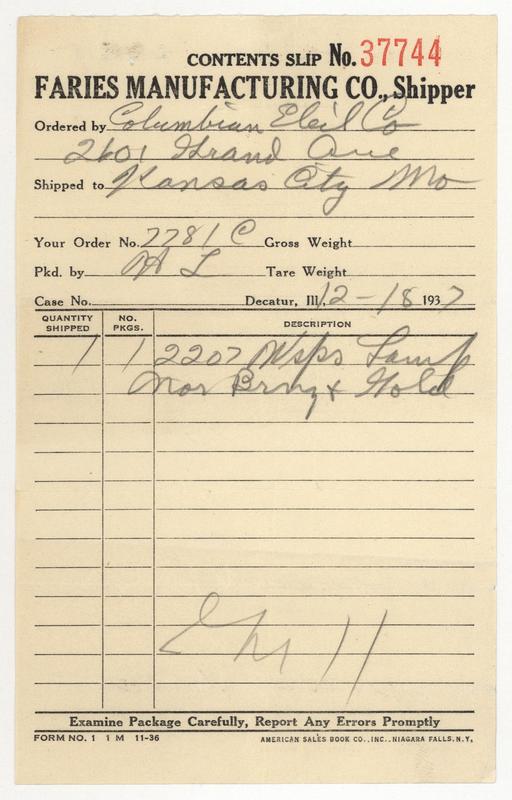 CONTENTS SLIP No. 37744
FARIES MANUFACTURING CO., Shipper
Ordered by Columbian Elcil Co
2601 Grand Ave
Shipped to Kansas City Mo
Your Order No. 7781 C Gross Weight
Pkd. by Tare Weight
Case No. Decatur, Ill., 12-18 1937
QUANTITY SHIPPED NO. PKGS. DESCRIPTION
1 1 2207 Lamp
Brnz & Gold
Examine Package Carefully, Report Any Errors Promptly
FORM NO. 1 1 M 11-36 AMERICAN SALES BOOK CO., INC., NIAGARA FALLS, N.Y.